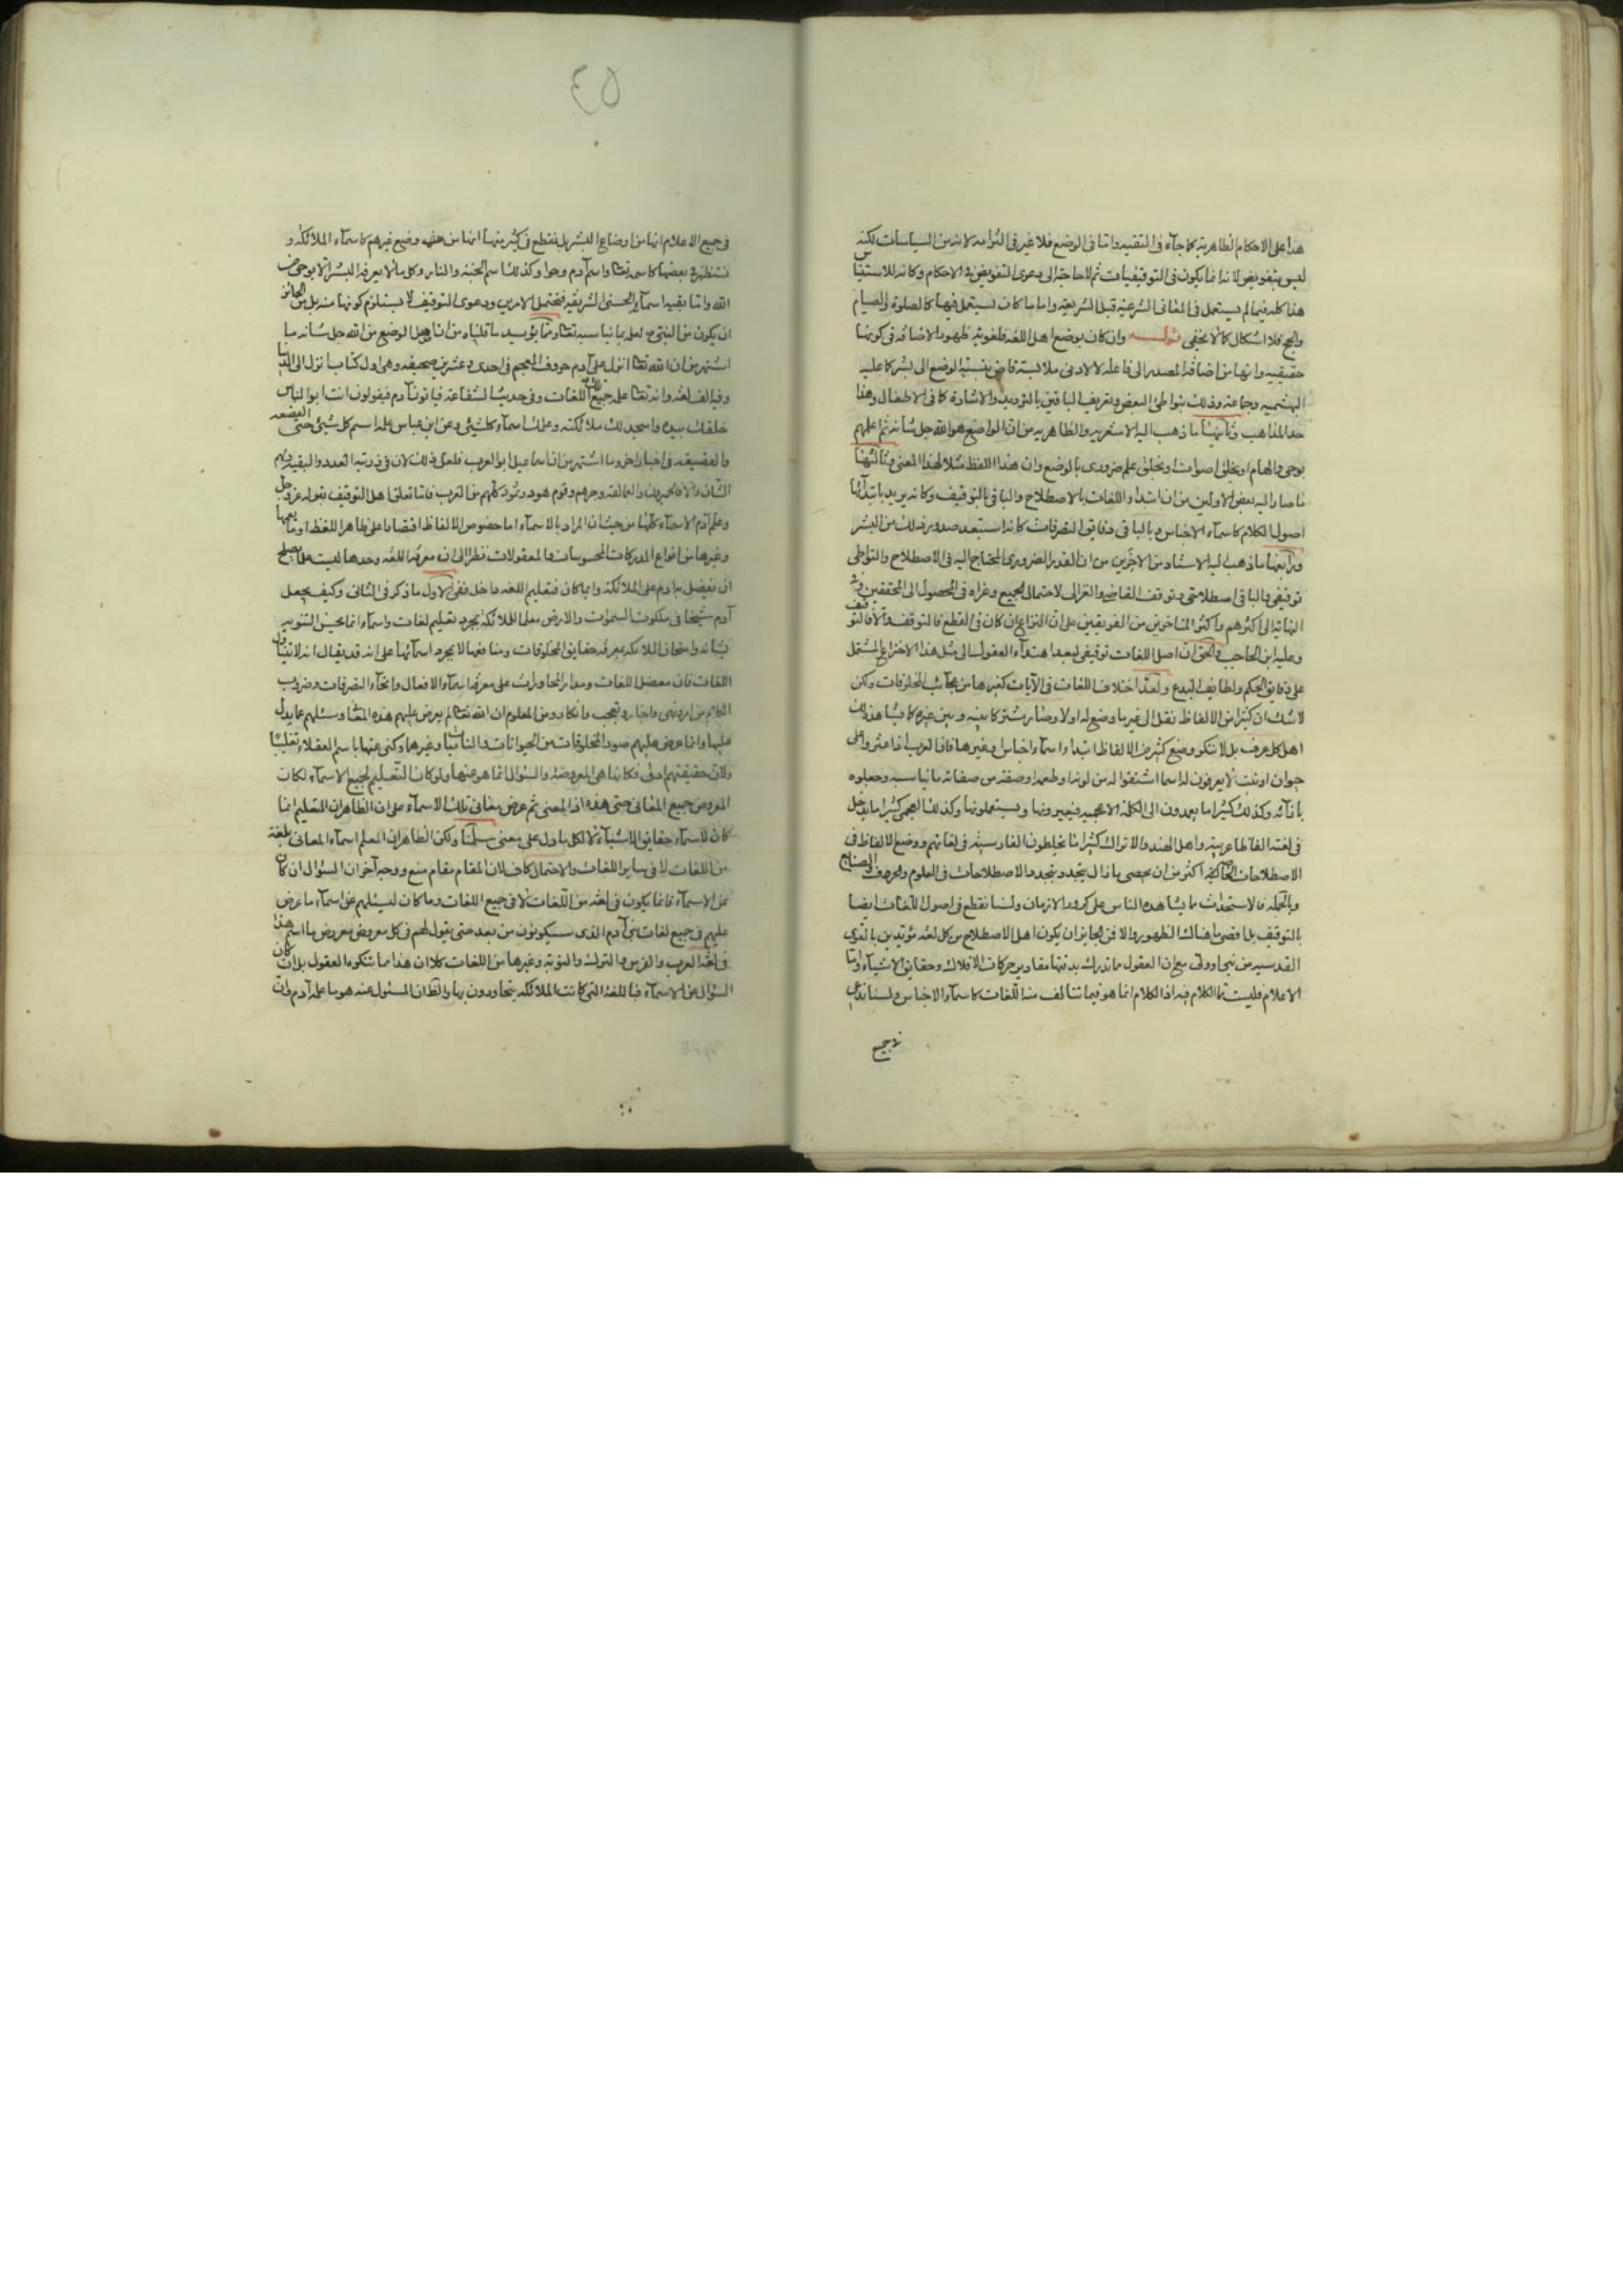 هذا على الاحكام الظاهرية كما جاء في التقيه واما في الوضع فلا غير في التوامه لانه من السياسات لكنه
ليس بتفويض لانه انما يكون في التوقيفيات ثم لا حاجة الى دعوى التفويض في الاحكام وكانه للاستيناس
هذا كله فيما لم يستعمل في المعاني الشرعيه قبل الشريعه واما ما كان يستعمل فيها كالصلوة والصيام
والحج فلا اشكال كما لا يخفى قوله وان كان بوضع اهل اللغه فلغوية ظهور الاضافه في كونها
حقيقيه وانها من اضافة المصدر الى فاعله لا لادنى ملابسة قاض بنسبة الوضع الى بشر كما عليه
البهشميه وجماعة وذلك بتواطئ البعض وتعريف الباقين بالترديد والاشارة كما في الاطفال وهذا
احد المذاهب وثانيها ما ذهب اليه الاشعريه والظاهريه من ان الواضع هو الله جل شانه ثم اعلمهم
بوحي والهام او بخلق اصوات او بخلق علم ضروري بالوضع وان هذا اللفظ مثلا لهذا المعنى وثالثها
ما صار اليه بعض الاولين من ان ابتداء اللغات بالاصطلاح والباقي بالتوقيف وكانه يريد بابتدائها
اصول الكلام كاسماء الاجناس وبالباقي دقائق التصرفات كانه استبعد صدور ذلك من البشر
ورابعها ما ذهب اليه الاستاد من الاخرين من ان القدر الضروري المحتاج اليه في الاصطلاح والتواطى
توقيفي والباقي اصطلاحي وتوقف القاضي والغزالي لاحتمال الجميع وعزاه في المحصول الى المحققين وفي
النهاية الى اكثرهم واكثر المتاخرين من الفريقين على ان النزاع ان كان في القطع فالتوقف والا فالتوقيف
وعليه ابن الحاجب والحق ان اصل اللغات توقيفي لبعد اهتداء العقول الى مثل هذا الاختراع المشتمل
على دقايق الحكم ولطايف البدع ولعد اختلاف اللغات في الآيات كغيرها من عجائب المخلوقات ولكن
لا شك ان كثيرا من الالفاظ نقل الى غير ما وضع له اولا وصار مشتركا بينه وبين غيره كما يشاهد ذلك
اهل كل عرف بل لا ننكر وضع كثير من الالفاظ ابتداء واسماء اجناس وغيرها فان العرب اذا عثروا على
حيوان او نبت لا يعرفون له اسما اشتقوا له من لونه او طعمه او صفة من صفاته ما يناسبه وجعلوه
بازائه وكذلك كثيرا ما يعمدون الى الكلمة الاعجميه فيغيرونها ويستعملونها وكذلك العجمي كثيرا ما يدخل
في لغته الفاظا عربية واهل الهند والاتراك كثيرا ما يخلطون الفارسية في لغاتهم ووضع الالفاظ في
الاصطلاحات اكثر من ان يحصى ما زال يتجدد بتجدد الاصطلاحات في العلوم والحرف والصنايع
وبالجمله فالاستحداث ما يشاهده الناس على كرور الازمان ولسنا نقطع في اصول اللغات ايضا
بالتوقيف بل اقصى ما هناك الظهور والا فمن الجايز ان يكون اهل الاصطلاح من كل لغه مؤيدين بالقوى
القدسيه من نبي او ولي مع ان العقول ما تدرك بدقتها مقادير حركات الافلاك وحقايق الاشياء واما
الاعلام فليست مما الكلام فيه اذ الكلام انما هو فيما تتالف منه اللغات كاسماء الاجناس ولسنا ندعي
في جميع
٤٥
في جميع الاعلام انها من اوضاع البشر بل نقطع في كثير منها انها من وضع غيرهم كاسماء الملائكه و
نستظهر في بعضها كاسمه تعالى واسم آدم وحوا وكذلك اسم الجنة والنار وكل ما لا يعرفه البشر الا بوحي من
الله واما بقيه اسماء الحسنى الشريفه فتحتمل الامرين ودعوى التوقيف لا يستلزم كونها منه بل من الجائز
ان يكون من النبي ص لعلمه بما يناسبه تعالى ومما يؤيد ما قلناه من ان اصل الوضع من الله جل شانه ما
اشتهر من ان الله تعالى انزل على آدم حروف المعجم في احدى وعشرين صحيفه وهي اول كتاب انزل الى الدنيا
وفيه الف لغة وانه تعالى علمه جميع اللغات وفي حديث الشفاعة فياتون آدم فيقولون انت ابو الناس
خلقك بيده واسجد لك ملائكته وعلمك اسماء كل شيئ وعن ابن عباس علمه اسم كل شيئ حتى القصعه
والقصيعه في اخبار اخر وما اشتهر من ان اسماعيل ابو العرب فلعل ذلك لان في ذريته العدد والبقيه ولهم
الشان والا فالجرهمان والعمالقه وجرهم وقوم هود وثمود كلهم من العرب فاما تعلق اهل التوقيف بقوله عز وجل
وعلم آدم الاسماء كلها من حيث ان المراد بالاسماء اما خصوص الالفاظ اقتصارا على ظاهر اللفظ او ما يعمها
وغيرها من انواع المدركات المحسوسات والمعقولات نظرا الى ان معرفة اللغه وحدها ليست مما يصلح
ان تفضيل به ادم على الملائكة وايا كان فتعليم اللغه داخل ففي الاول ما ذكر في الثاني وكيف يجعل
آدم شيخا في ملكوت السموات والارض معلما للملائكة بمجرد تعليم لغات واسماء انما يحسن التنويه
بشانه وامتحان الملائكه بمعرفة حقايق المخلوقات ومنافعها لا بمجرد اسمائها على انه قد يقال انه لا يتناول
اللغات فان معضل اللغات ومدار المحاورات على معرفة اسماء الافعال وانحاء التصرفات وضروب
الكلام من امر ونهى واخبار وتعجب وانكار ومن المعلوم ان الله تعالى لم يعرض عليهم هذه المعاني وسئلهم عما يدل
عليها وانما عرض عليهم صور المخلوقات من الحيوانات والنباتات وغيرها وكنى عنها باسم العقلاء تغليبا
ولان حقيقتهم اوفى فكانها هي المعروضه والسؤال انما هو عنها ولو كان التعليم لجميع الاسماء لكان
المعروض جميع المعاني حتى هذه اذ المعنى ثم عرض معاني تلك الاسماء على ان الظاهر ان التعليم انما
كان لاسماء حقايق الاشياء لا لكل ما دل على معنى سلمنا ولكن الظاهر ان المعلم اسماء المعاني بلغة
من اللغات لا في ساير اللغات والاحتمال كاف لان المقام مقام منع ووجه آخر ان السؤال ان كان
عن الاسماء فانما يكون في لغة من اللغات لا في جميع اللغات وما كان ليسئلهم عن اسماء ما عرض
عليهم في جميع لغات بني آدم الذي سيكونون من بعد حتى يقول لهم في كل معروض معروض ما اسم هذا
في لغة العرب والفرس والترك والنوبة وغيرها من اللغات كلا ان هذا مما تنكره العقول بل ان كان
السؤال عن الاسماء فباللغة التي كانت الملائكه يتحاورون بها والظ ان المسئول عنه هو ما علمه آدم وان